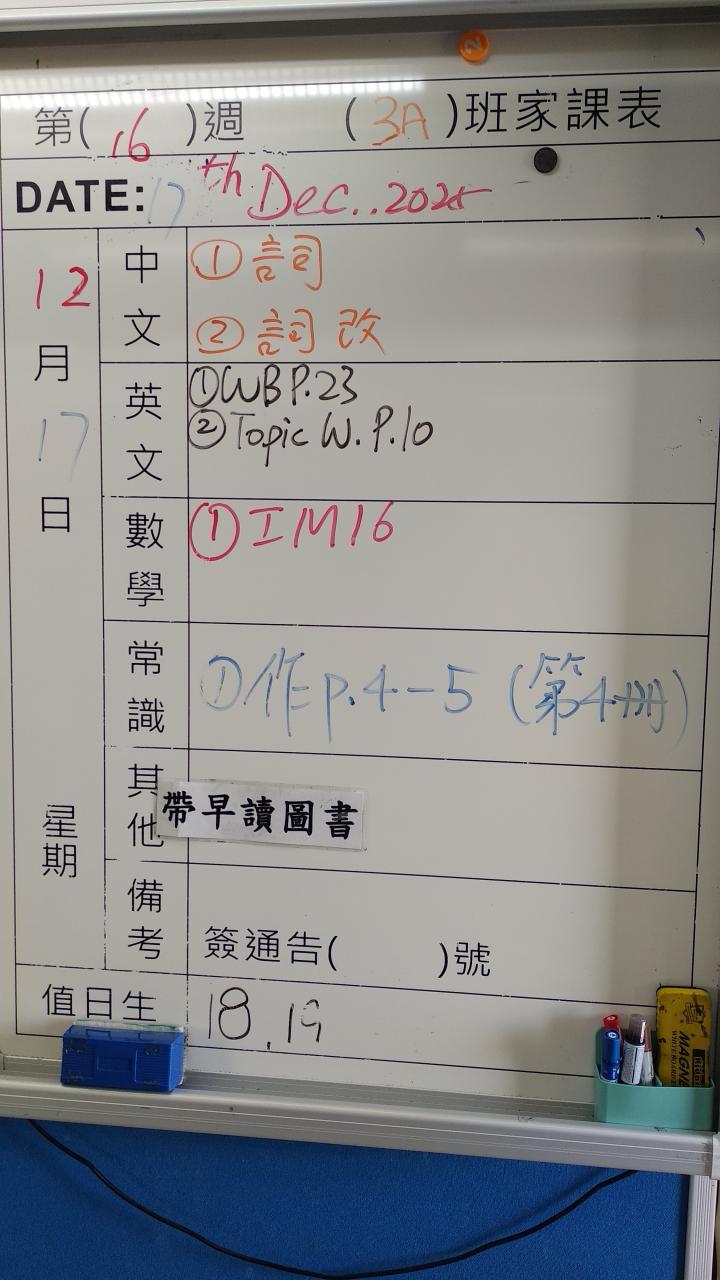 第( 16 )週 (3A)班家課表
DATE: 17th Dec..2025
12月17日
星期
中文
①詞
②詞改
英文
①WB P.23
②Topic W. P.10
數學
①IM16
常識
①作p.4-5 (第4冊)
其他
帶早讀圖書
備考
簽通告( )號
值日生
18.19